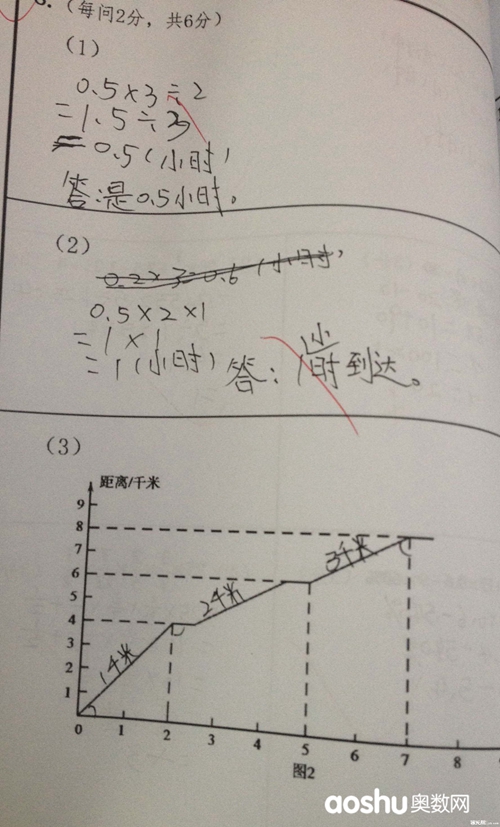 (每问2分，共6分)
(1)
0.5×3÷2
=1.5÷3
=0.5(小时)
答:是0.5小时。
(2)
0.2×3=0.6(小时)
0.5×2×1
=1×1
=1(小时) 答:1小时到达。
(3)
距离/千米
9
8
7
6
5
4
3
2
1
1千米
2千米
3千米
0 1 2 3 4 5 6 7 8
图2
aoshu奥数网